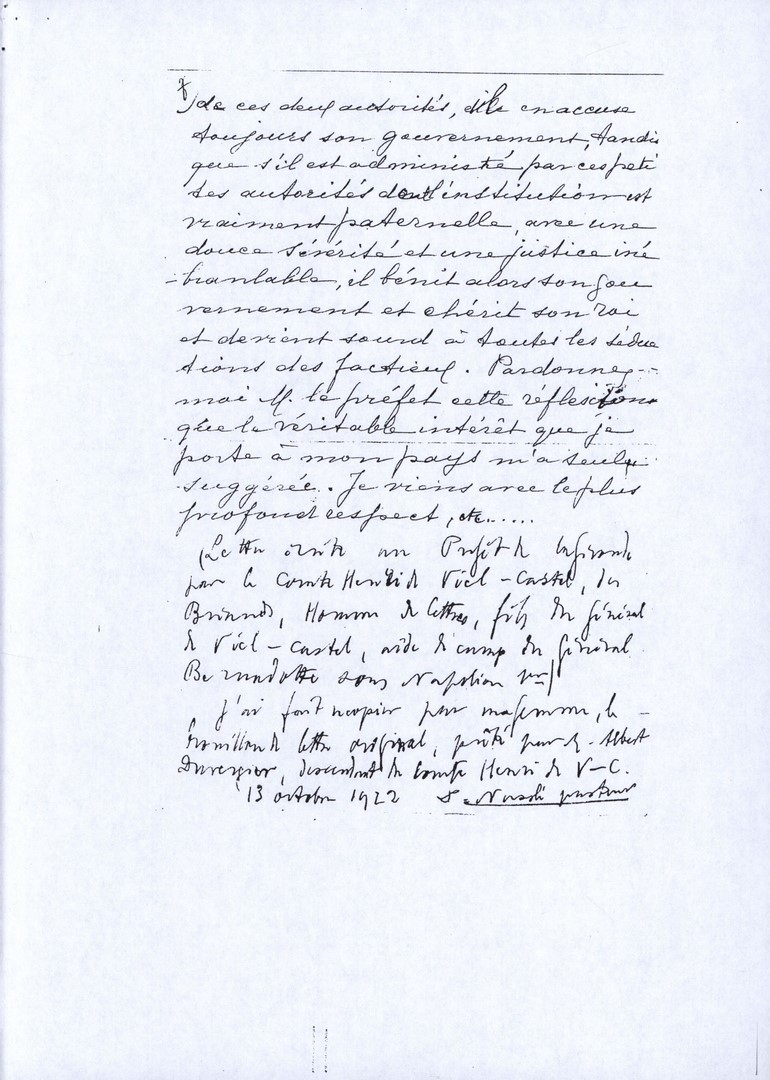 de ces deux autorités, dils en accuse
toujours son gouvernement, tandis
que s'il est administré par ces peti
tes autorités dont l'institution est
vraiment paternelle, avec une
douce sévérité et une justice iné
-branlable, il bénit alors son gou
vernement et chérit son roi
et devient sourd à toutes les séduc
tions des factieux. Pardonnez-
moi M. le préfet cette réflexions
que le véritable intérêt que je
porte à mon pays m'a seule
suggérée. Je viens avec le plus
profond respect, etc......
(Lettre écrite au Préfet de la Gironde
par le Comte Henri de Viel-Castel, des
Briands, Homme de lettres, fils du général
de Viel-Castel, aide de camp du général
Bernadotte sous Napoléon 1er)
J'ai fait recopier par ma femme, le
brouillon de lettre original, prêté par Albert
Duvergier, descendant du comte Henri de V-C.
13 octobre 1922 pasteur